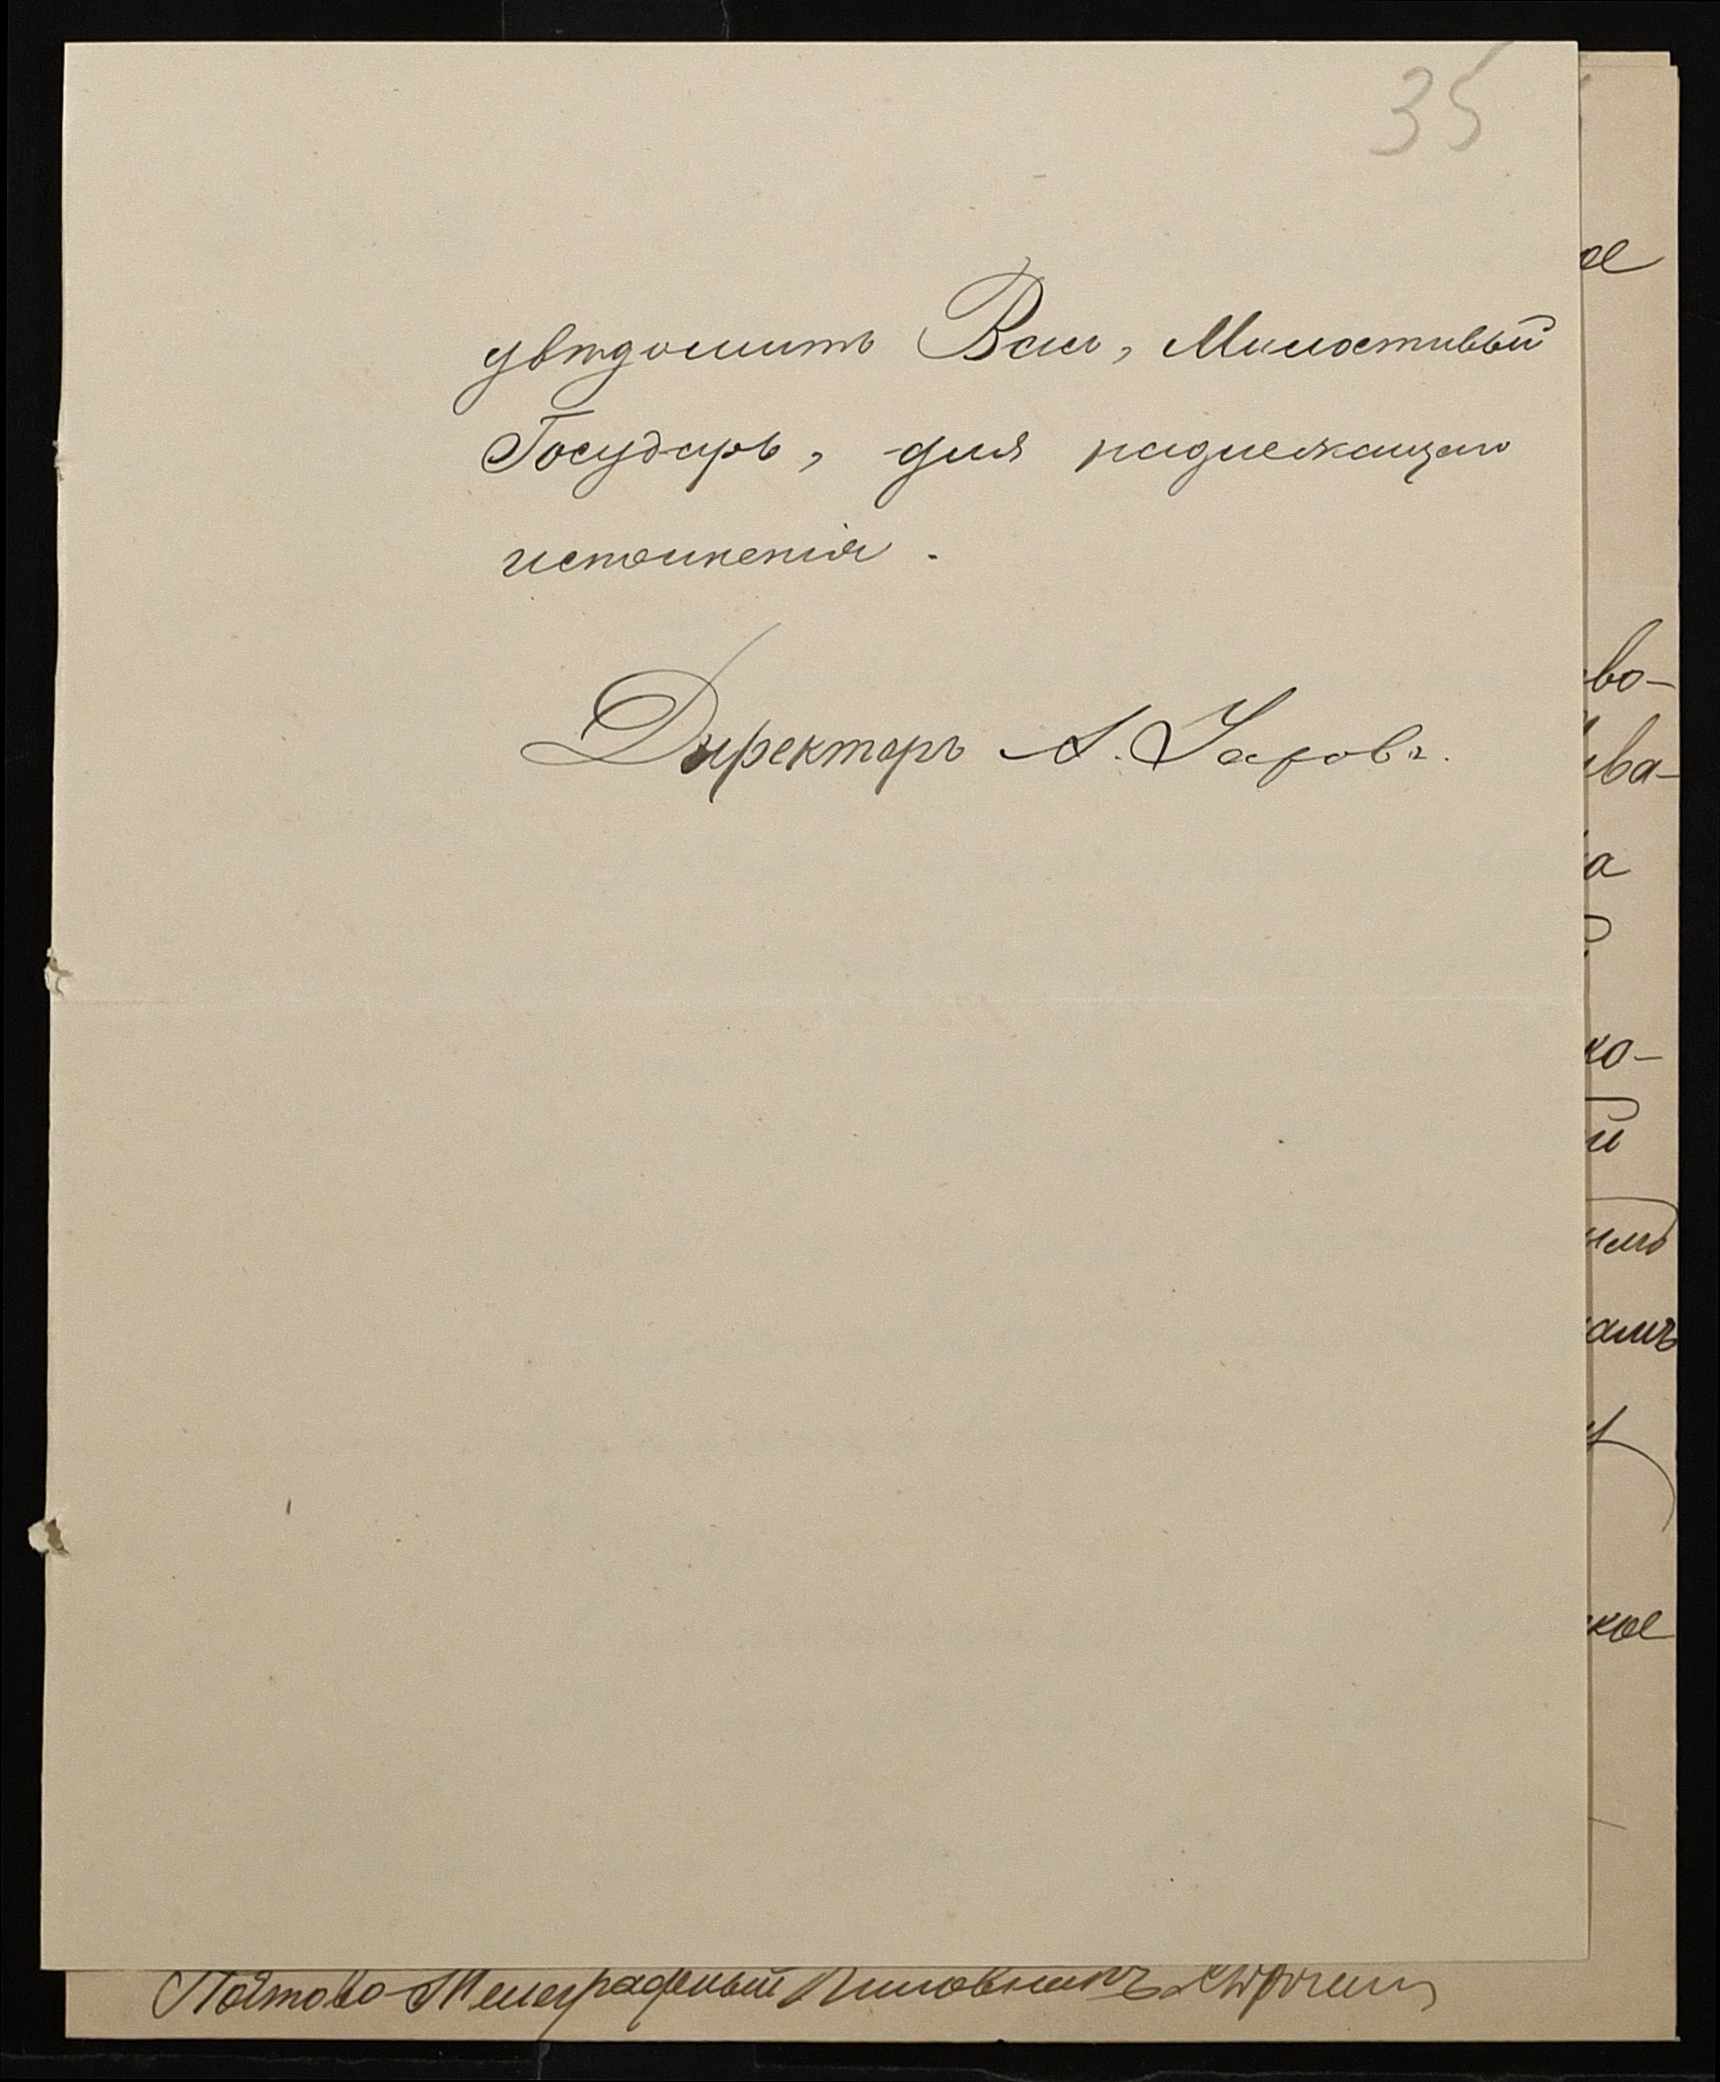 35
увѣдомить Васъ, Милостивый
Государь, для надлежащаго
исполненія.
Директоръ А.
ое
во-
ва-
а
ко-
й
амъ
кое
Почтово-Телеграфный Чиновникъ